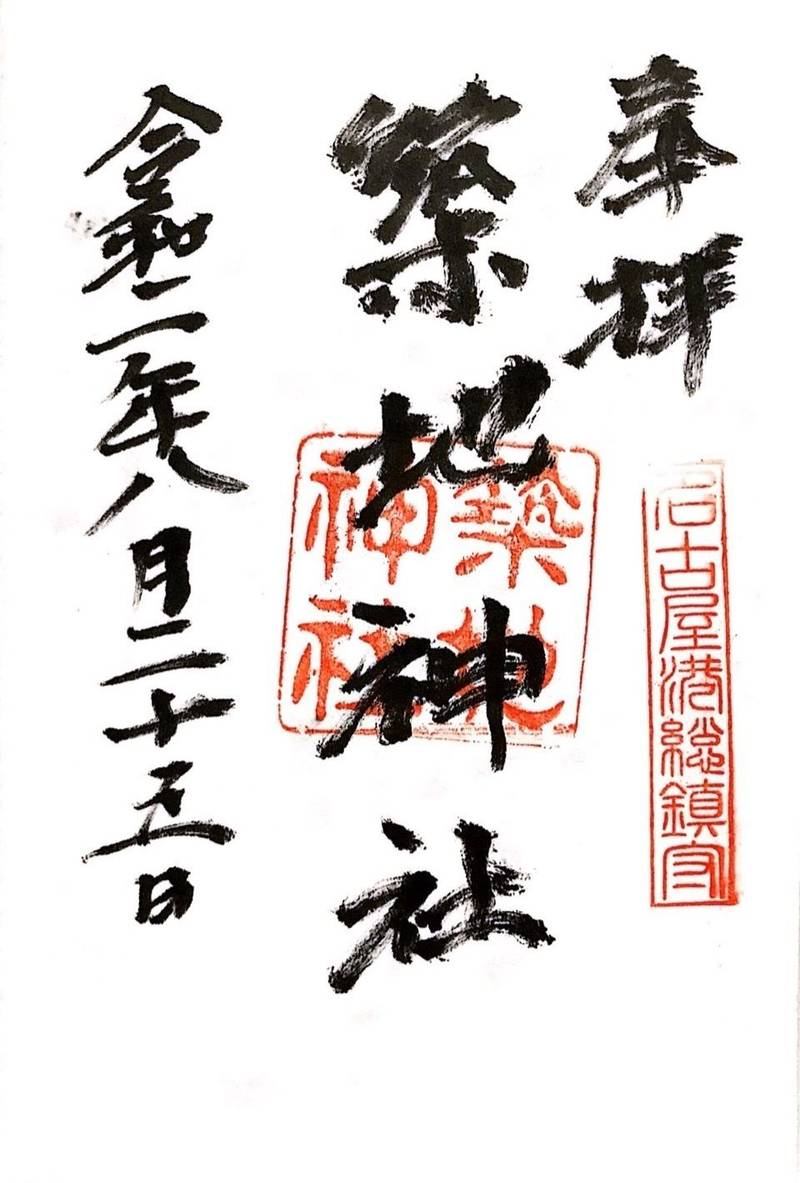 奉拝
名古屋港総鎮守
築地神社
築地
神社
令和二年八月二十五日